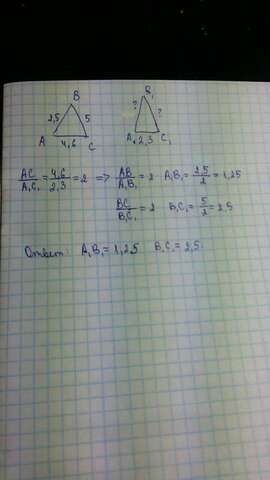 B B₁
2,5 5 ? ?
A 4,6 C A₁ 2,3 C₁
AC/A₁C₁ = 4,6/2,3 = 2 => AB/A₁B₁ = 2 A₁B₁ = 2,5/2 = 1,25
BC/B₁C₁ = 2 B₁C₁ = 5/2 = 2,5
Ответ: A₁B₁ = 1,25 B₁C₁ = 2,5